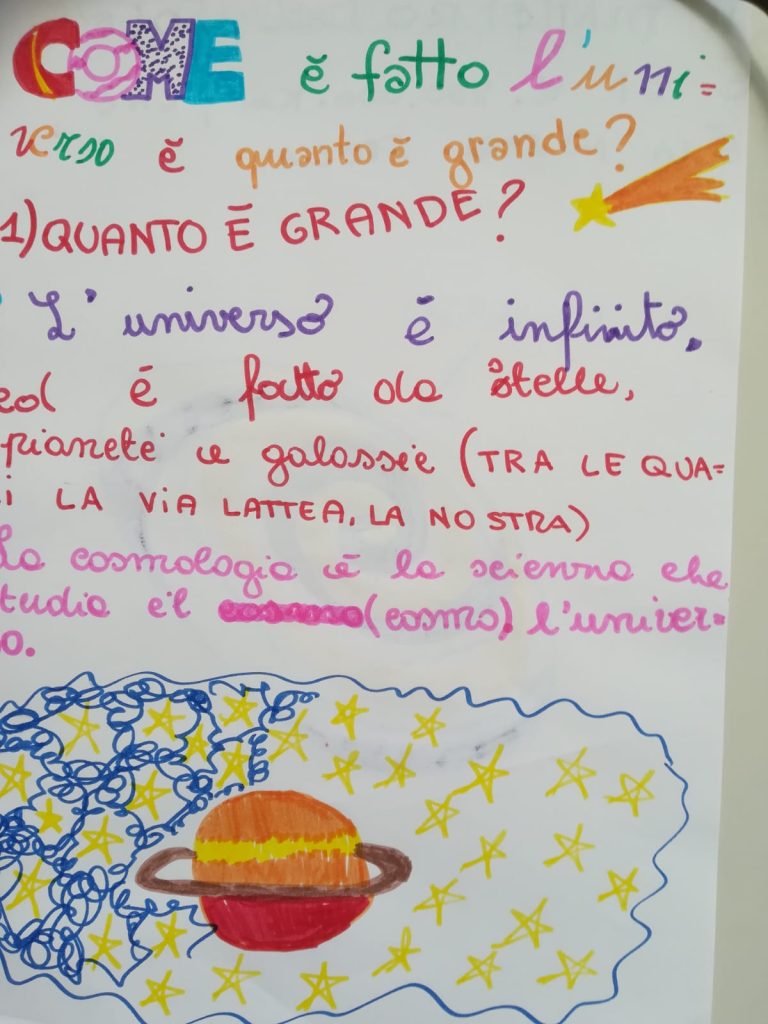 COME ĕ fatto l'uni=
verso ĕ quanto ĕ grande?
1) QUANTO Ē GRANDE?
L' universo ē infinito.
ed ē fatto da stelle,
pianeti e galassie (TRA LE QUA=
li LA ViA LATTEA, LA NOSTRA)
La cosmologia ē la scienza che
studia il cosmo (cosmo), l'univer=
so.